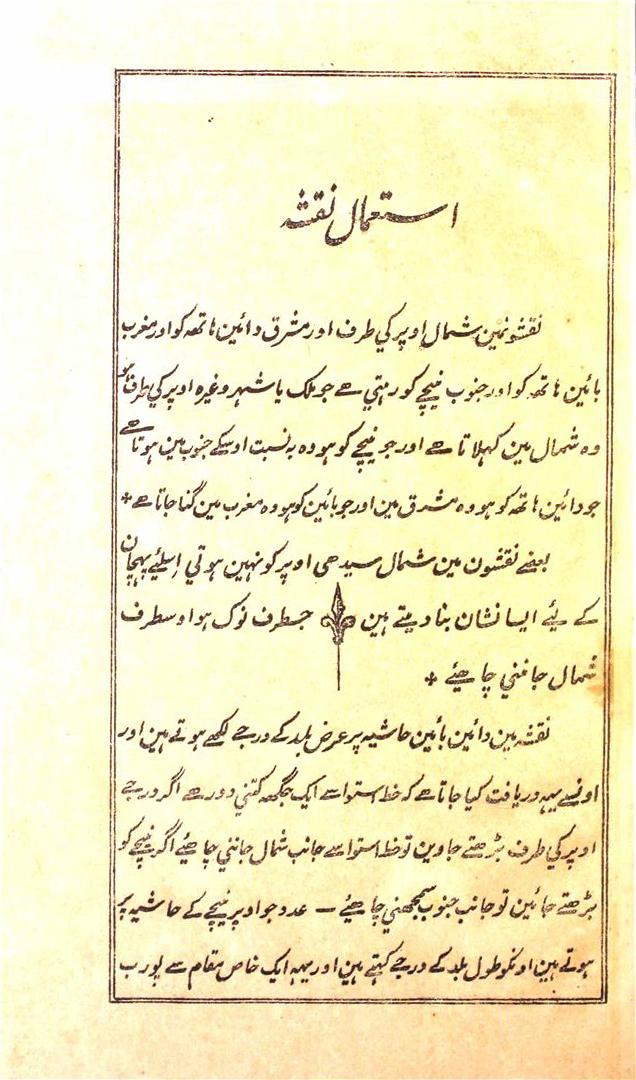 استعمال نقشہ
نقشونمین شمال اوپر کي طرف اور مشرق دائین هاتھ کو اور مغرب
بائین هاتھ کو اور جنوب نیچے کو رهتي هے جو ملک یا شہر وغیرہ اوپر کي طرف هو
وہ شمال مین کہلاتا هے اور جو نیچے کو هو وہ بہ نسبت اوسکے جنوب مین هوتا هے
جو دائین هاتھ کو هو وہ مشرق مین اور جو بائین کو هو وہ مغرب مین گنا جاتا هے *
بعضے نقشون مین شمال سیدهی اوپر کو نہین هوتي اسلئے پہچان
کے لیے ایسا نشان بنا دیتے هین جسطرف نوک هو اوسطرف
شمال جانني چاهیئے *
نقشہ مین دائین بائین حاشیہ پر عرض بلد کے درجے لکھے هوتے هین اور
اونسے یہہ دریافت کیا جاتا هے کہ خط استوا سے ایک جگہہ کتني دور هے اگر درجے
اوپر کي طرف بڑهتے جاوین تو خط استوا سے جانب شمال جانني چاهیئے اگر نیچے کو
بڑهتے جائین تو جانب جنوب سمجھني چاهیئے — عدد جو اوپر نیچے کے حاشیہ پر
هوتے هین اونکو طول بلد کے درجے کہتے هین اور یہہ ایک خاص مقام سے پورب